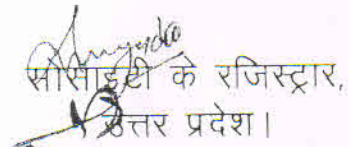 सोसाइटी के रजिस्ट्रार,
उत्तर प्रदेश।